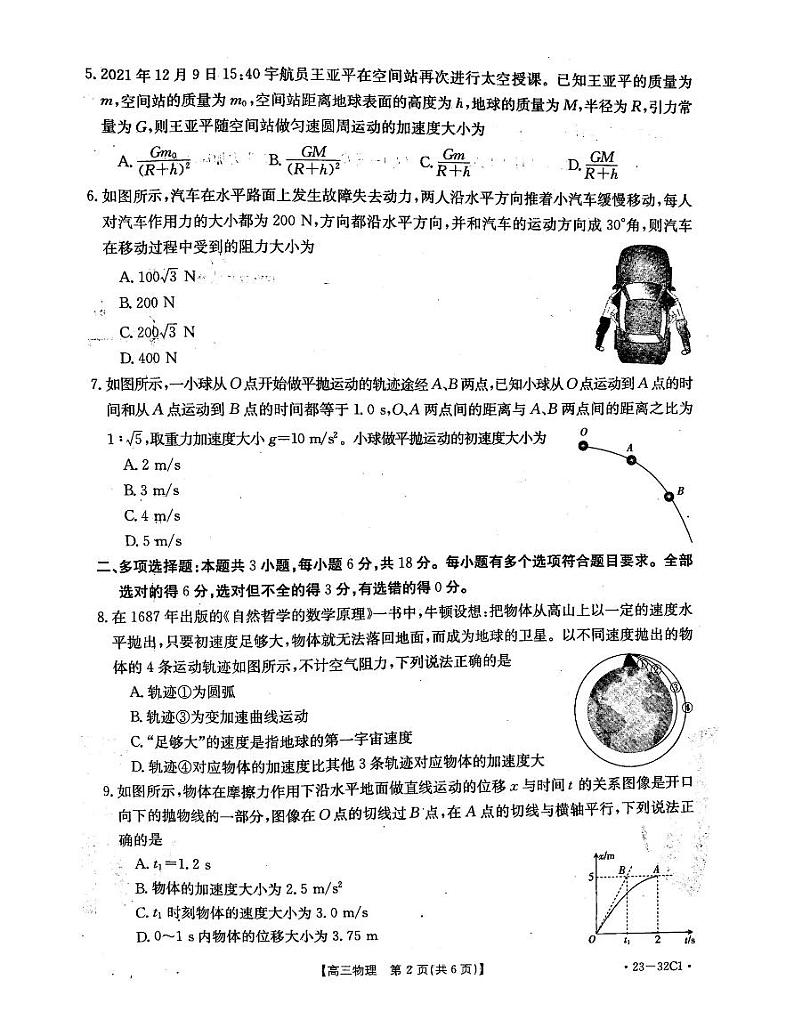 5. 2021 年 12 月 9 日 15:40 宇航员王亚平在空间站再次进行太空授课。已知王亚平的质量为
m,空间站的质量为 m₀,空间站距离地球表面的高度为 h,地球的质量为 M,半径为 R,引力常
量为 G,则王亚平随空间站做匀速圆周运动的加速度大小为
A. Gm₀/(R+h)² B. GM/(R+h)² C. Gm/R+h D. GM/R+h
6. 如图所示,汽车在水平路面上发生故障失去动力,两人沿水平方向推着小汽车缓慢移动,每人
对汽车作用力的大小都为 200 N,方向都沿水平方向,并和汽车的运动方向成 30°角,则汽车
在移动过程中受到的阻力大小为
A. 100√3 N
B. 200 N
C. 200√3 N
D. 400 N
7. 如图所示,一小球从 O 点开始做平抛运动的轨迹途经 A、B 两点,已知小球从 O 点运动到 A 点的时
间和从 A 点运动到 B 点的时间都等于 1.0 s,O、A 两点间的距离与 A、B 两点间的距离之比为
1∶√5,取重力加速度大小 g=10 m/s²。小球做平抛运动的初速度大小为
O
A
B
A. 2 m/s
B. 3 m/s
C. 4 m/s
D. 5 m/s
二、多项选择题:本题共 3 小题,每小题 6 分,共 18 分。每小题有多个选项符合题目要求。全部
选对的得 6 分,选对但不全的得 3 分,有选错的得 0 分。
8. 在 1687 年出版的《自然哲学的数学原理》一书中,牛顿设想:把物体从高山上以一定的速度水
平抛出,只要初速度足够大,物体就无法落回地面,而成为地球的卫星。以不同速度抛出的物
体的 4 条运动轨迹如图所示,不计空气阻力,下列说法正确的是
① ② ③ ④
A. 轨迹①为圆弧
B. 轨迹③为变加速曲线运动
C. “足够大”的速度是指地球的第一宇宙速度
D. 轨迹④对应物体的加速度比其他 3 条轨迹对应物体的加速度大
9. 如图所示,物体在摩擦力作用下沿水平地面做直线运动的位移 x 与时间 t 的关系图像是开口
向下的抛物线的一部分,图像在 O 点的切线过 B 点,在 A 点的切线与横轴平行,下列说法正
确的是
A. t₁=1.2 s
B. 物体的加速度大小为 2.5 m/s²
C. t₁ 时刻物体的速度大小为 3.0 m/s
D. 0~1 s 内物体的位移大小为 3.75 m
x/m
5
B
A
O
t₁
2
t/s
【高三物理 第 2 页(共 6 页)】
·23-32C1·